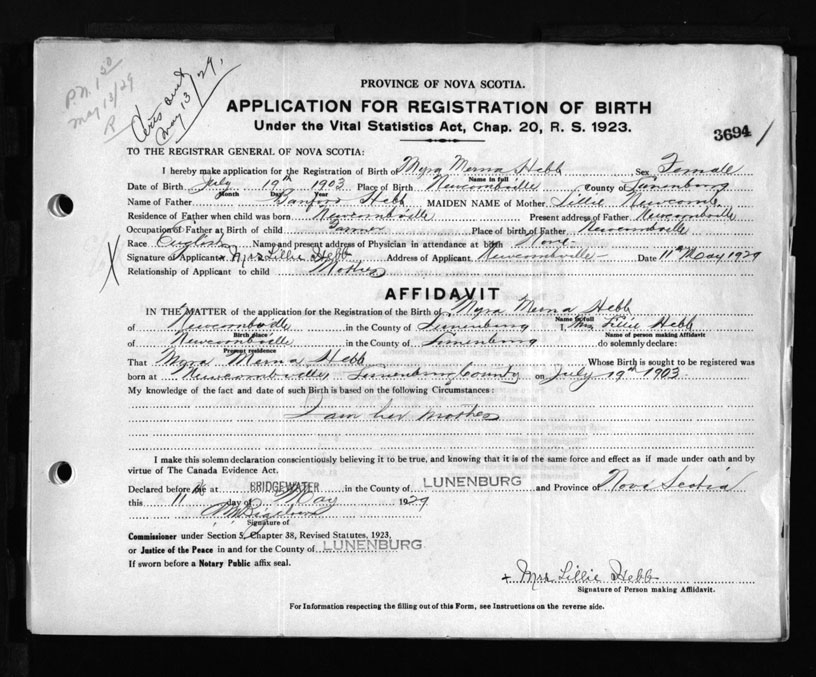 P.N. 1 50
May 13/29
R
Certs and
May 13/29.
PROVINCE OF NOVA SCOTIA.
APPLICATION FOR REGISTRATION OF BIRTH
Under the Vital Statistics Act, Chap. 20, R. S. 1923.
3694 /
TO THE REGISTRAR GENERAL OF NOVA SCOTIA:
I hereby make application for the Registration of Birth of Myra Merna Hebb Sex Female
Name in full
Date of Birth July 19th 1903 Place of Birth Newcombville County of Lunenburg
Month Day Year
Name of Father Sanford Hebb MAIDEN NAME of Mother Lillie Newcomb
Residence of Father when child was born Newcombville Present address of Father Newcombville
Occupation of Father at Birth of child Farmer Place of birth of Father Newcombville
X Race English Name and present address of Physician in attendance at birth None
Signature of Applicant x Mrs Lillie Hebb Address of Applicant Newcombville Date 11th May 1929
Relationship of Applicant to child Mother
AFFIDAVIT
IN THE MATTER of the application for the Registration of the Birth of Myra Merna Hebb
Name in full
of Newcombville in the County of Lunenburg I, Mrs Lillie Hebb
Birth place Name of person making Affidavit
of Newcombville in the County of Lunenburg do solemnly declare:
Present residence
That Myra Merna Hebb Whose Birth is sought to be registered was
born at Newcombville, Lunenburg County on July 19th 1903.
My knowledge of the fact and date of such Birth is based on the following Circumstances:
I am her mother
I make this solemn declaration conscientiously believing it to be true, and knowing that it is of the same force and effect as if made under oath and by
virtue of The Canada Evidence Act.
Declared before me at BRIDGEWATER in the County of LUNENBURG and Province of Nova Scotia
this 11th day of May 1929
Signature of
Commissioner under Section 5, Chapter 38, Revised Statutes, 1923,
or Justice of the Peace in and for the County of LUNENBURG
If sworn before a Notary Public affix seal.
x Mrs. Lillie Hebb
Signature of Person making Affidavit.
For Information respecting the filling out of this Form, see Instructions on the reverse side.